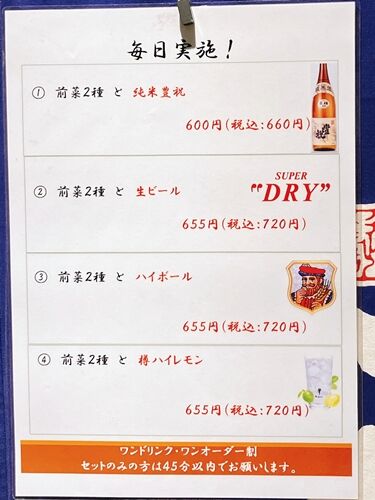 毎日実施！
① 前菜2種 と 純米豊祝
600円(税込:660円)
② 前菜2種 と 生ビール
SUPER
"DRY"
655円(税込:720円)
③ 前菜2種 と ハイボール
655円(税込:720円)
④ 前菜2種 と 樽ハイレモン
655円(税込:720円)
ワンドリンク・ワンオーダー制
セットのみの方は45分以内でお願いします。